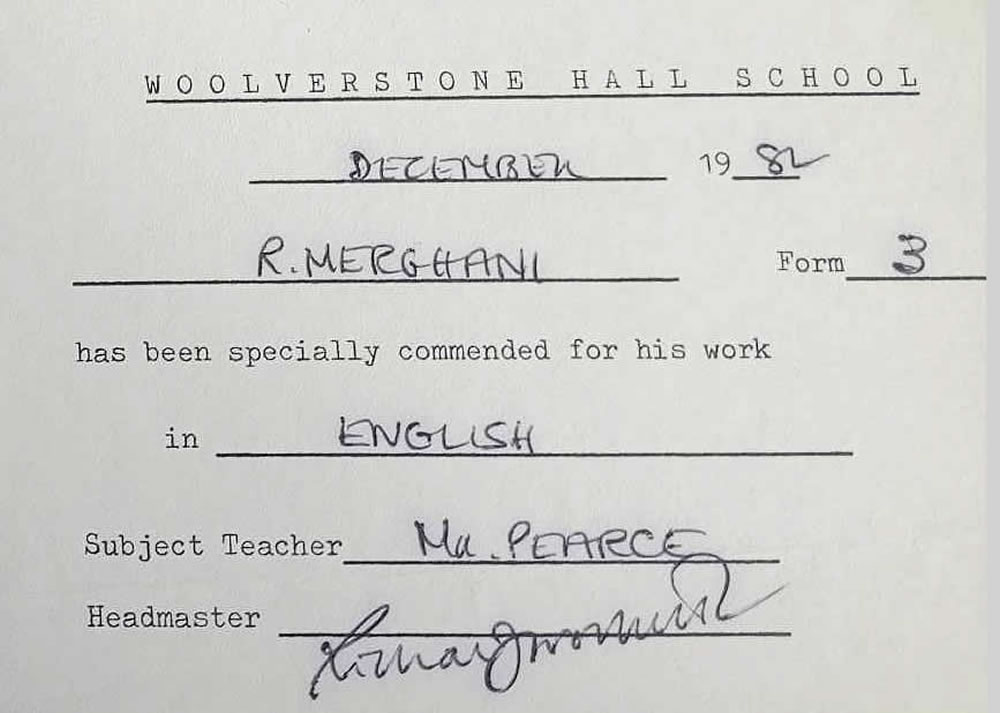 WOOLVERSTONE HALL SCHOOL
DECEMBER 19 82
R. MERGHANI Form 3
has been specially commended for his work
in ENGLISH
Subject Teacher Mr. PEARCE
Headmaster